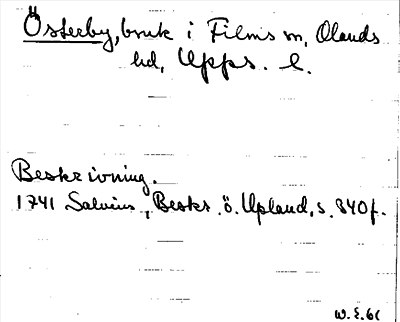 Österby, bruk i Films sn, Olands
hd, Upps. l.
Beskrivning.
1741 Salvius, Beskr. ö. Upland, s. 340f.
W.E.61